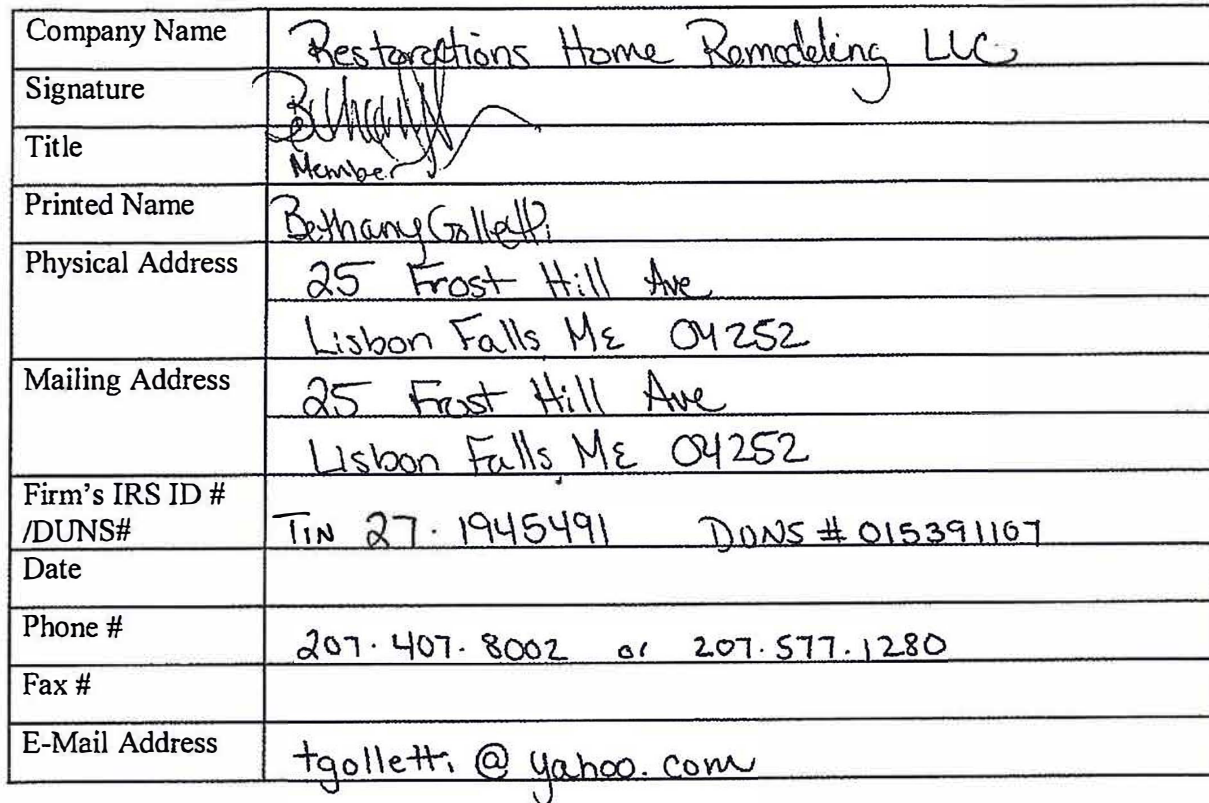 Company Name Restorations Home Remodeling LLC
Signature
Title Member
Printed Name Bethany Golletti
Physical Address 25 Frost Hill Ave
Lisbon Falls ME 04252
Mailing Address 25 Frost Hill Ave
Lisbon Falls ME 04252
Firm's IRS ID #
/DUNS# TIN 27.1945491 DUNS # 015391107
Date
Phone # 207.407.8002 or 207.577.1280
Fax #
E-Mail Address tgolletti@yahoo.com